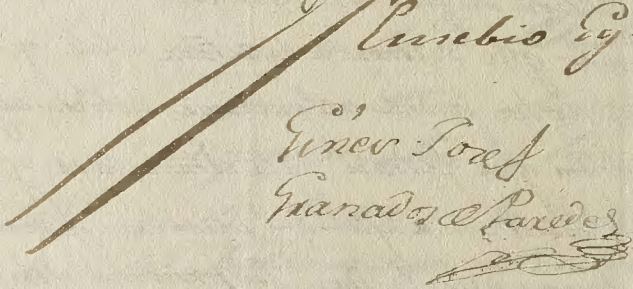 Eusebio
Gines Josef
Granados & Paredes